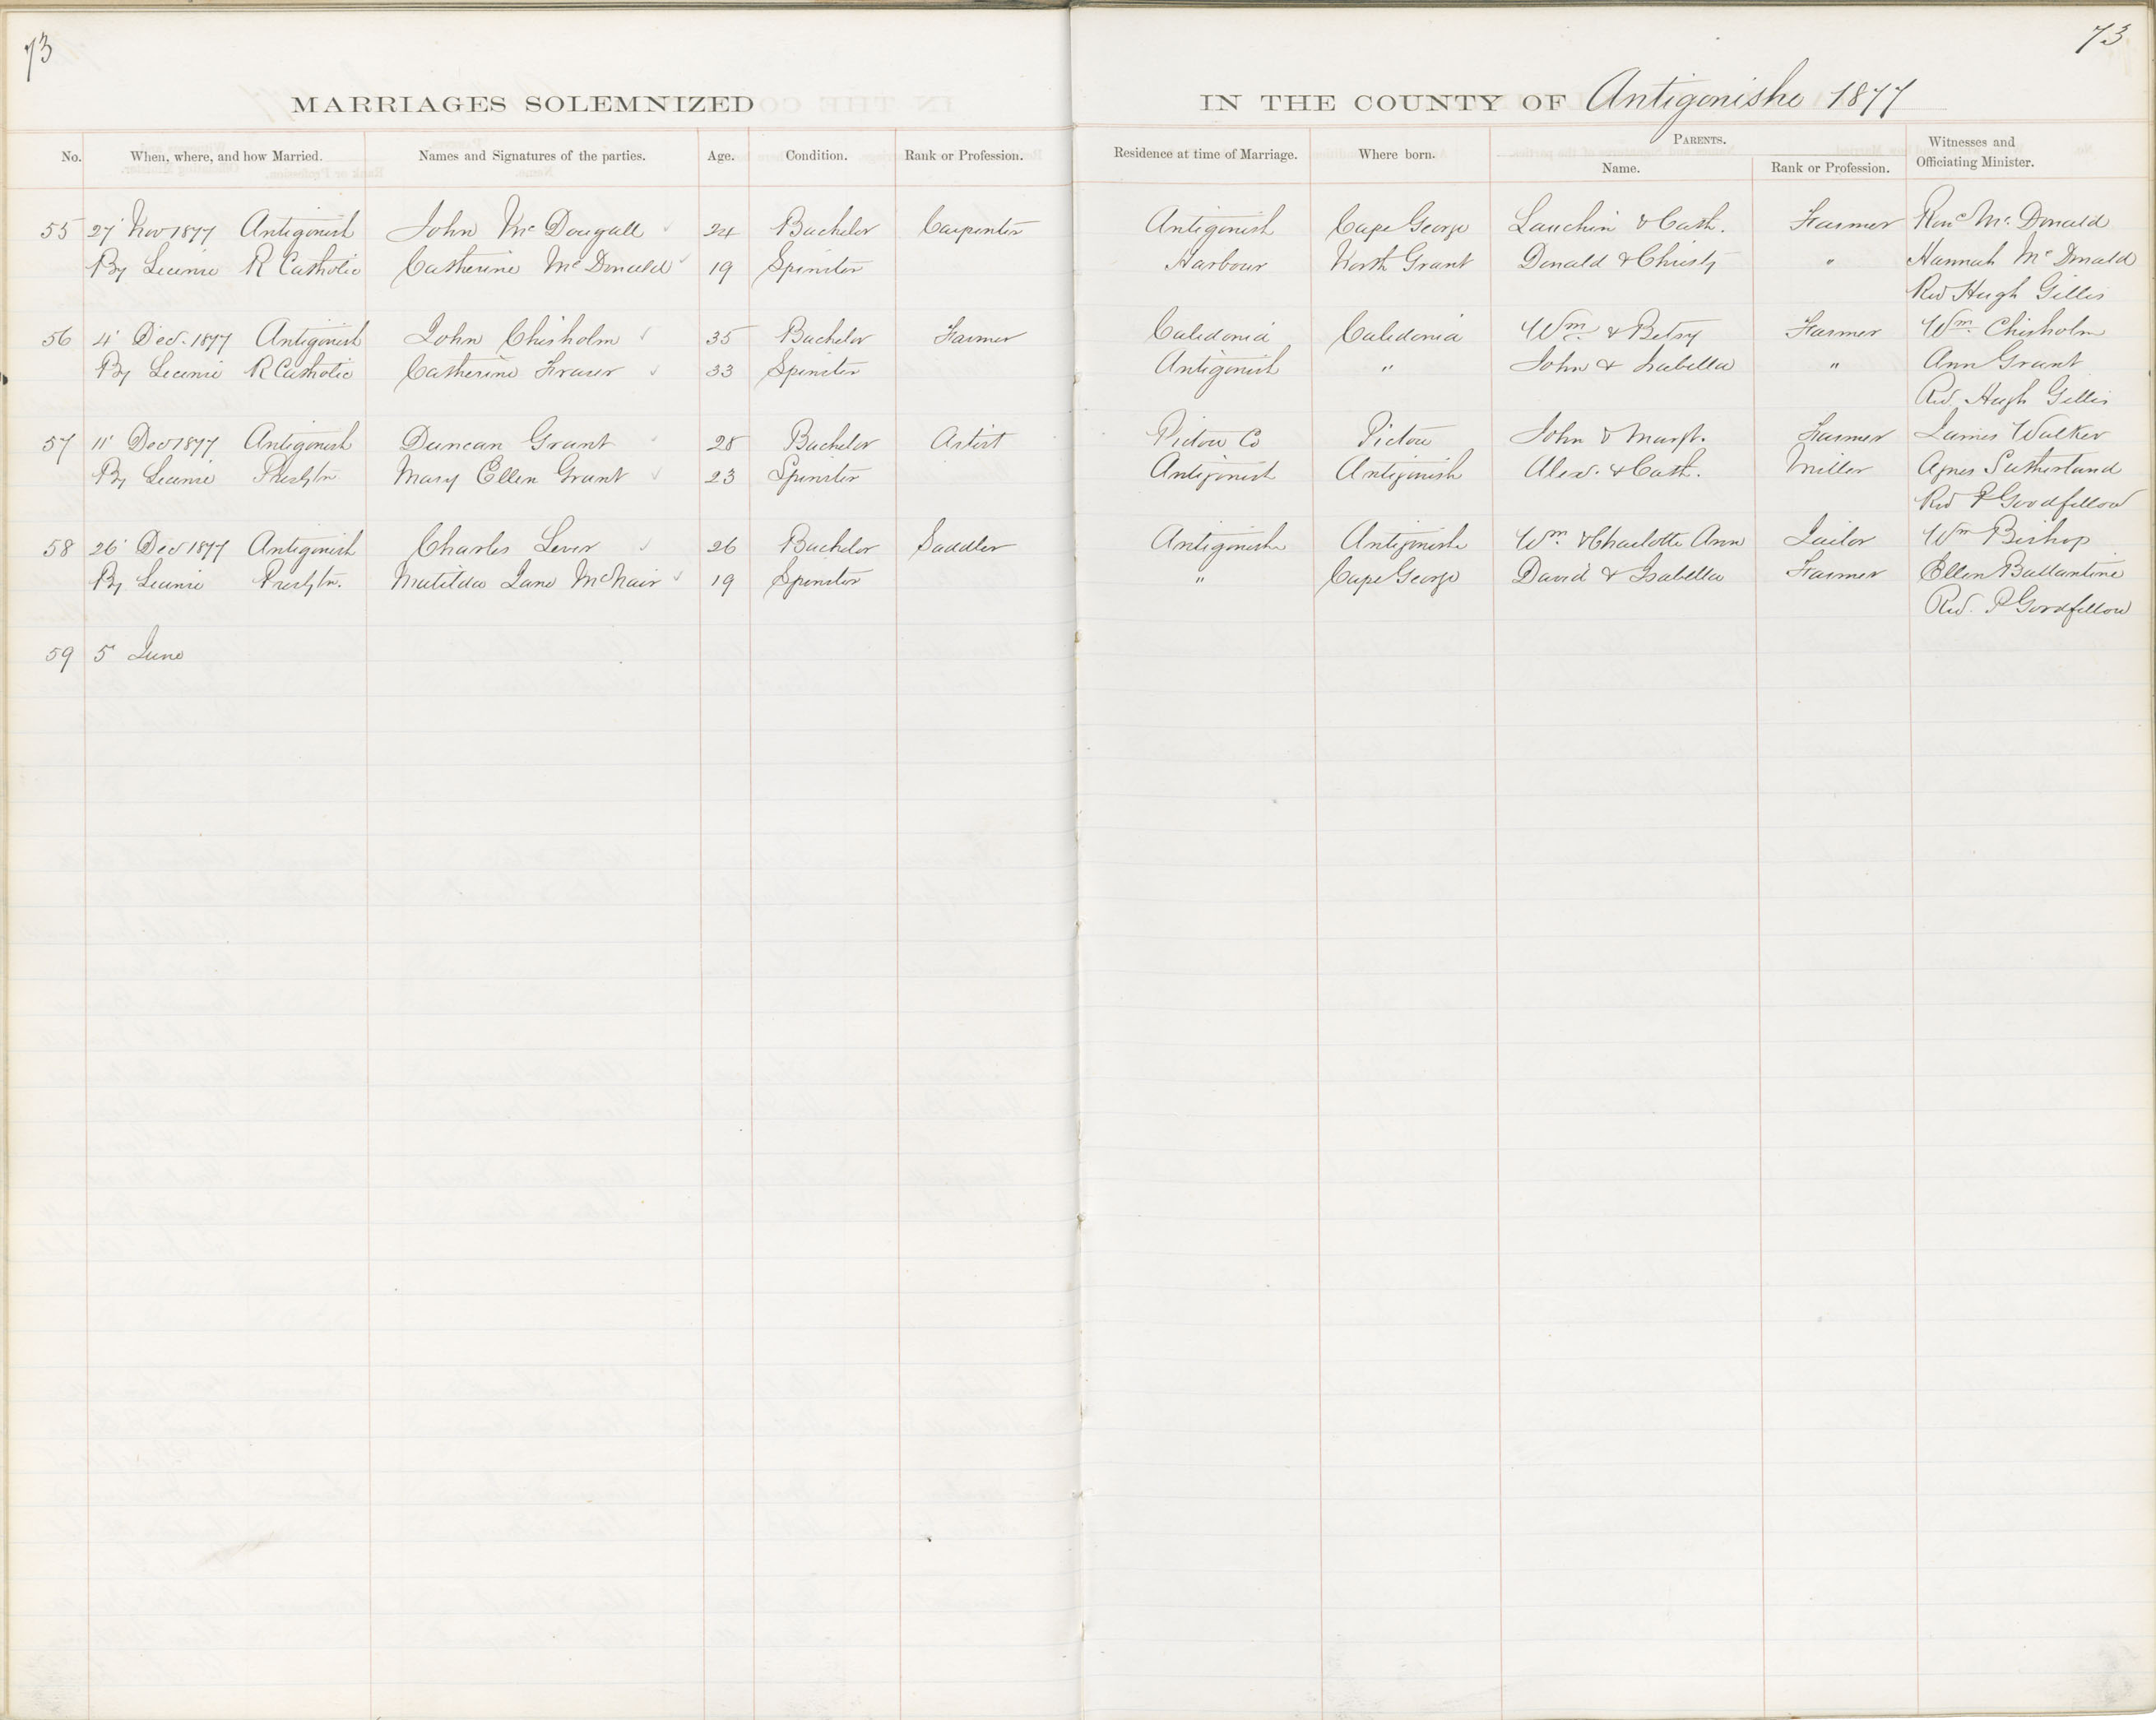 73
73
MARRIAGES SOLEMNIZED IN THE COUNTY OF Antigonishe 1877
No. When, where, and how Married. Names and Signatures of the parties. Age. Condition. Rank or Profession. Residence at time of Marriage. Where born. PARENTS. Name. Rank or Profession. Witnesses and Officiating Minister.
55 27' Nov 1877 Antigonish John McDougall 24 Bachelor Carpenter Antigonish Cape George Lauchin & Cath. Farmer McDonald
By Licence R Catholic Catherine McDonald 19 Spinster Harbour North Grant Donald & Christy " Hannah McDonald
Rev Hugh Gillis
56 4' Dec. 1877 Antigonish John Chisholm 35 Bachelor Farmer Caledonia Caledonia Wm & Betsy Farmer Wm Chisholm
By Licence R Catholic Catherine Fraser 33 Spinster Antigonish " John & Isabella " Ann Grant
Rev. Hugh Gillis
57 11' Dec 1877 Antigonish Duncan Grant 28 Bachelor Artist Pictou Co Pictou John & Margt. Farmer James Walker
By Licence Presbtn Mary Ellen Grant 23 Spinster Antigonish Antigonish Alex. & Cath. Miller Agnes Sutherland
Rev P Goodfellow
58 26' Dec 1877 Antigonish Charles Lever 26 Bachelor Saddler Antigonishe Antigonishe Wm & Charlotte Ann Tailor Wm Bishop
By Licence Presbtn. Matilda Jane McNair 19 Spinster " Cape George David & Isabella Farmer Ellen Ballantine
Rev. P Goodfellow
59 5' June